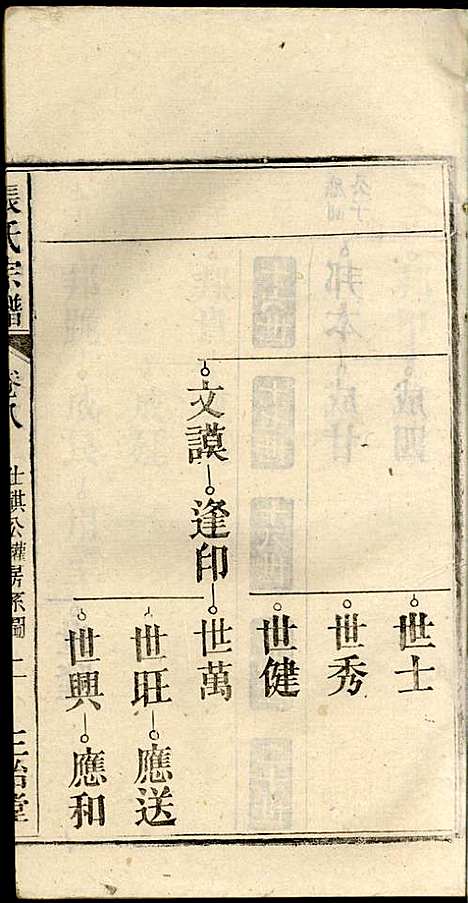 世士
世秀
世健
文謨逢印世萬
世旺應送
世興應和
張氏宗譜
卷八
仕祺公權房系圖